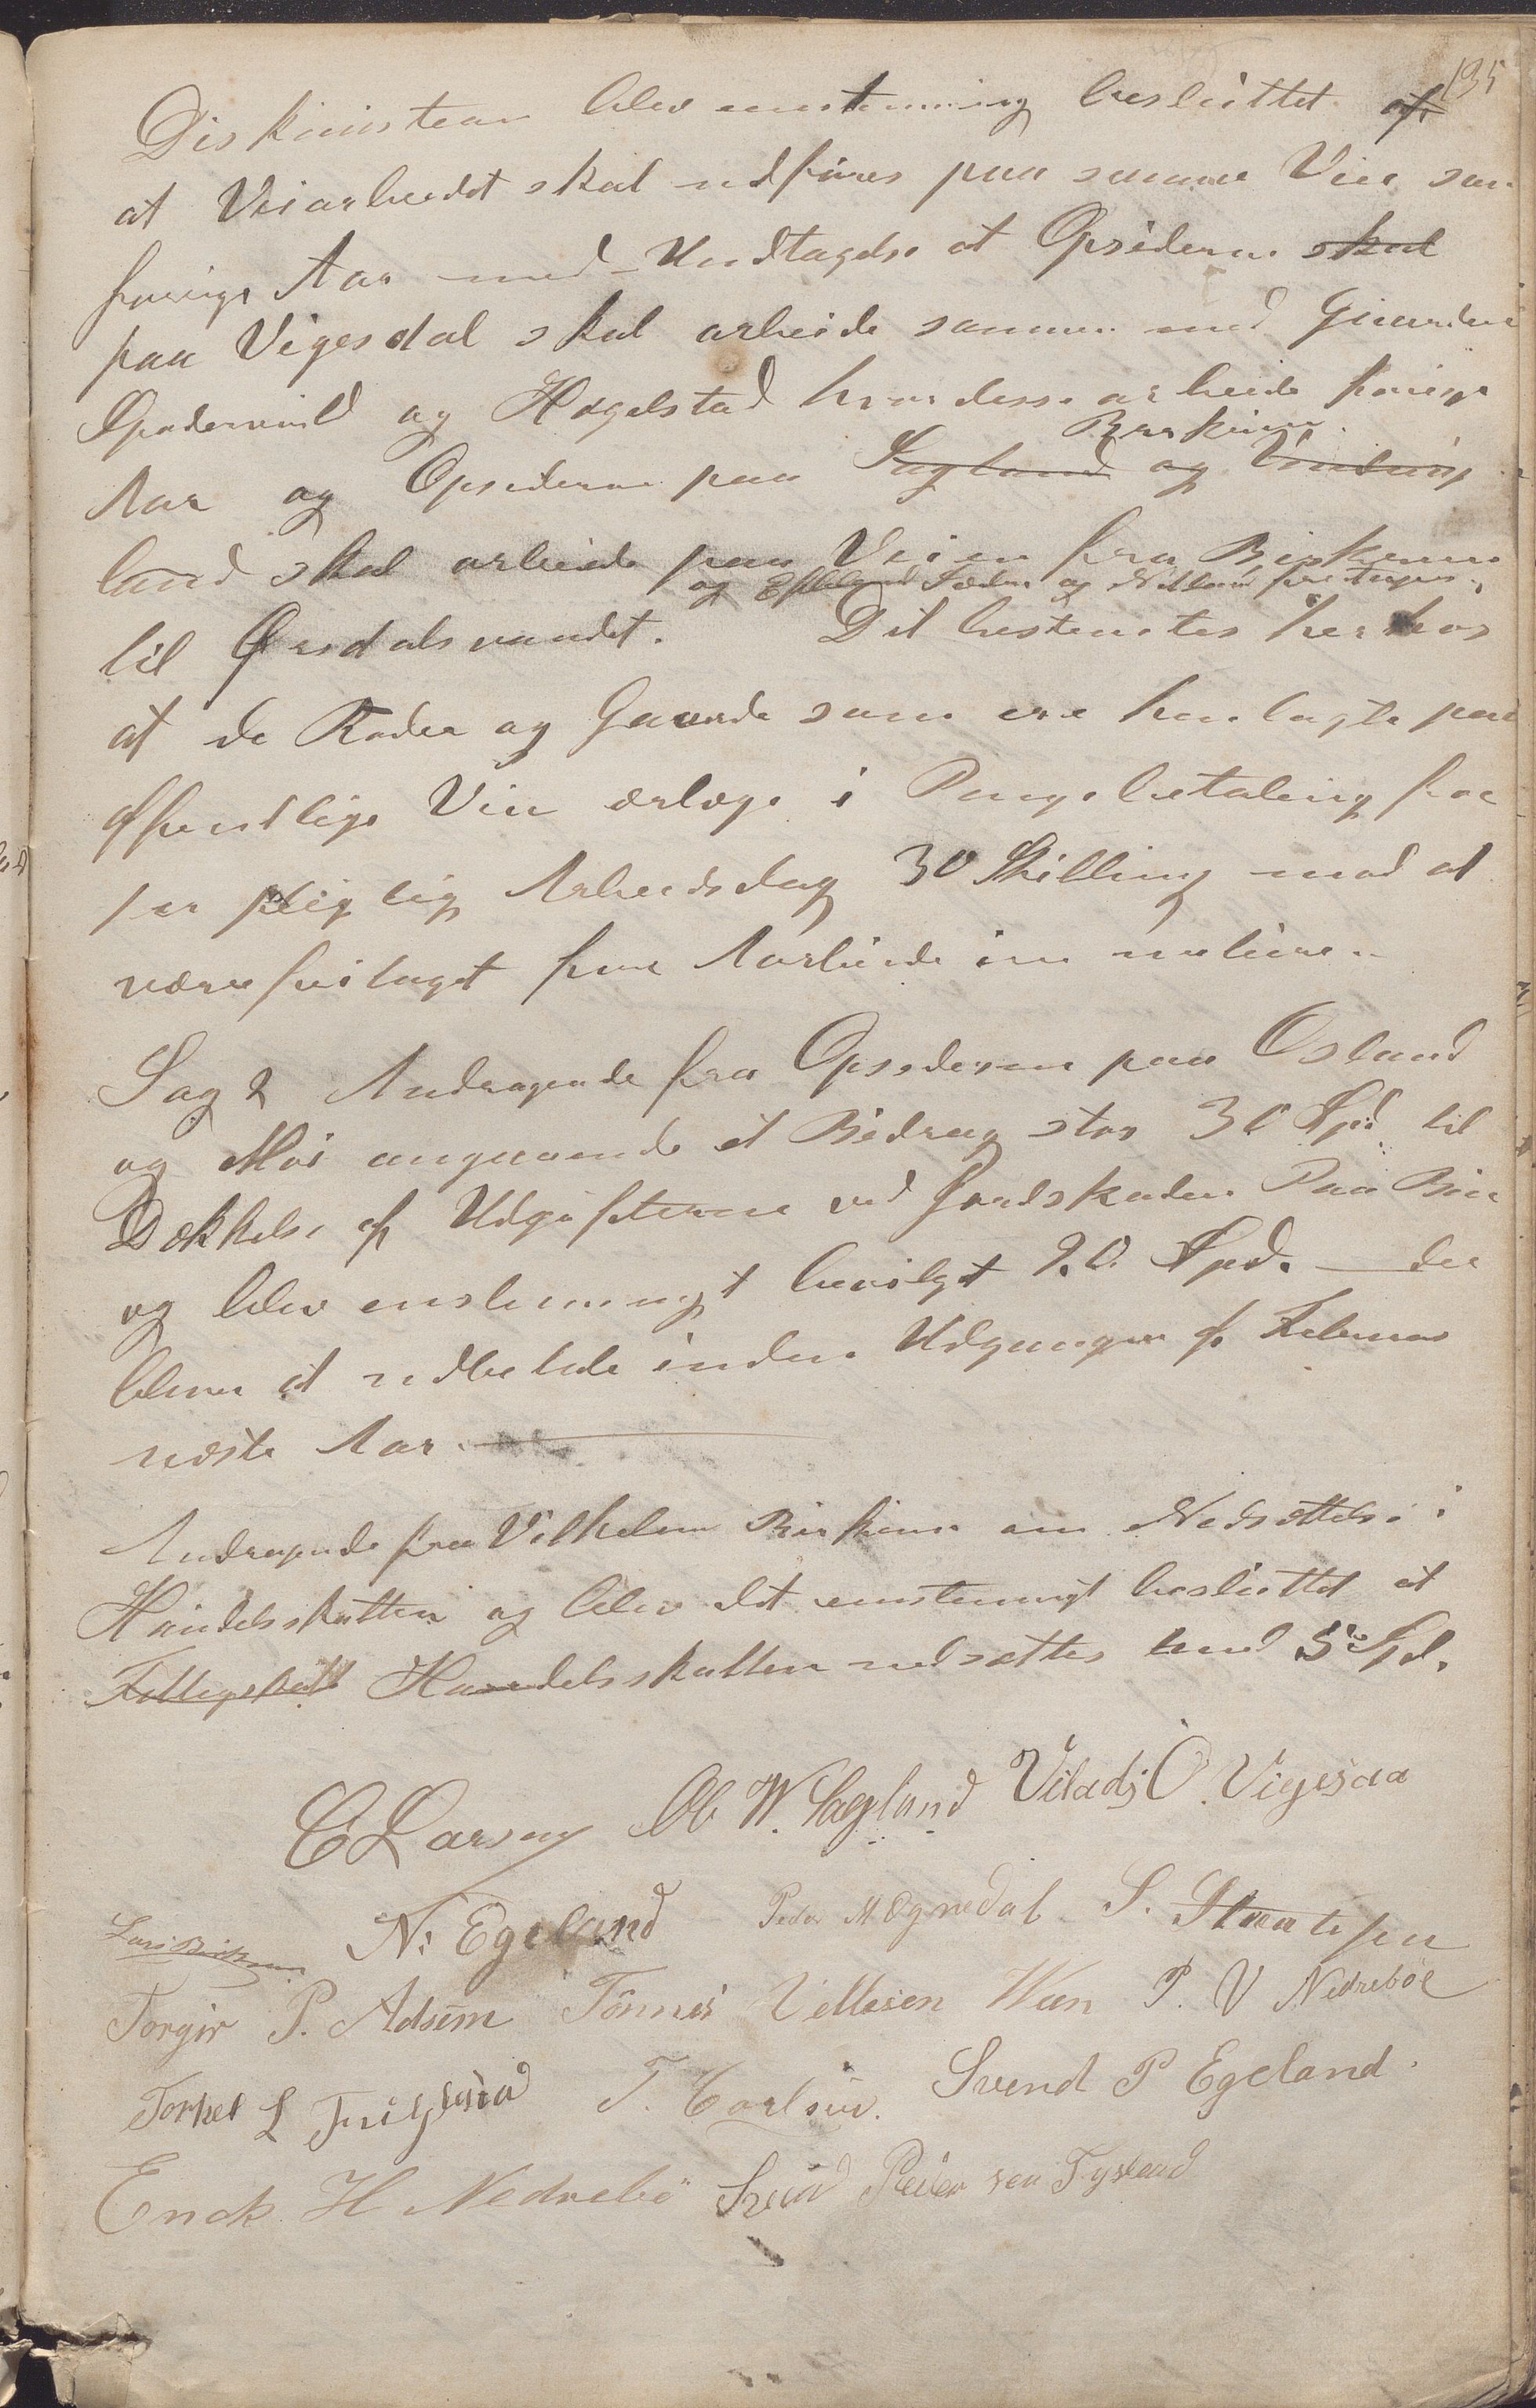 135
Diskuisteon blev enstemmig besluttet af
at Veiarbeidet skal udføres paa samme Vise som
forrige Aar med Undtagelse at Opsiderne skal
paa Vigesdal skal arbeide sammen med Gaarden
og Hogelstad hvor desse arbeide forrige
Birkeim
Aar og Opsiderne paa Sagland og
land skal arbeide paa Veien fra Birkeim
og Efteland og Netland
til Ørsdalsvandet. Det bestemtes herhos
at de Roder og Gaarde som ere henlagte paa
offentlige Veie erlægge i Penge betaling for
per pligtig Arbeidsdag 30 Skilling mod at
være fritaget fra Aarbeide in natura
Sag 2 Andragende fra Opsiderne paa Osland
og Moi angaaende et Bidrag stor 30 Spd. til
Dækkelse af Udgifterne ved Jordskaden Paa
og blev enstemmigt bevilget 20 Spd. der
bliver at udbetale inden Udgangen af Februar
næste Aar.
Andragende fra Vilhelm Birkeim om Nedsættelse i
Handelsskatten og blev det enstemmigt besluttet at
Fattigskatt Handelsskatten nedsættes med 5 Spd.
C Larsen Ol. W. Sagland Viladj O. Vigesaa
Lars Birkeim N. Egeland Peder M Ognedal S.
Torger P. Adsem Tönnes Villesen Ween P. V Nedrebøe
Torkel L T. Carlsen. Svend P Egeland.
Enok H Nedrebö Svend Peder sen Tysland